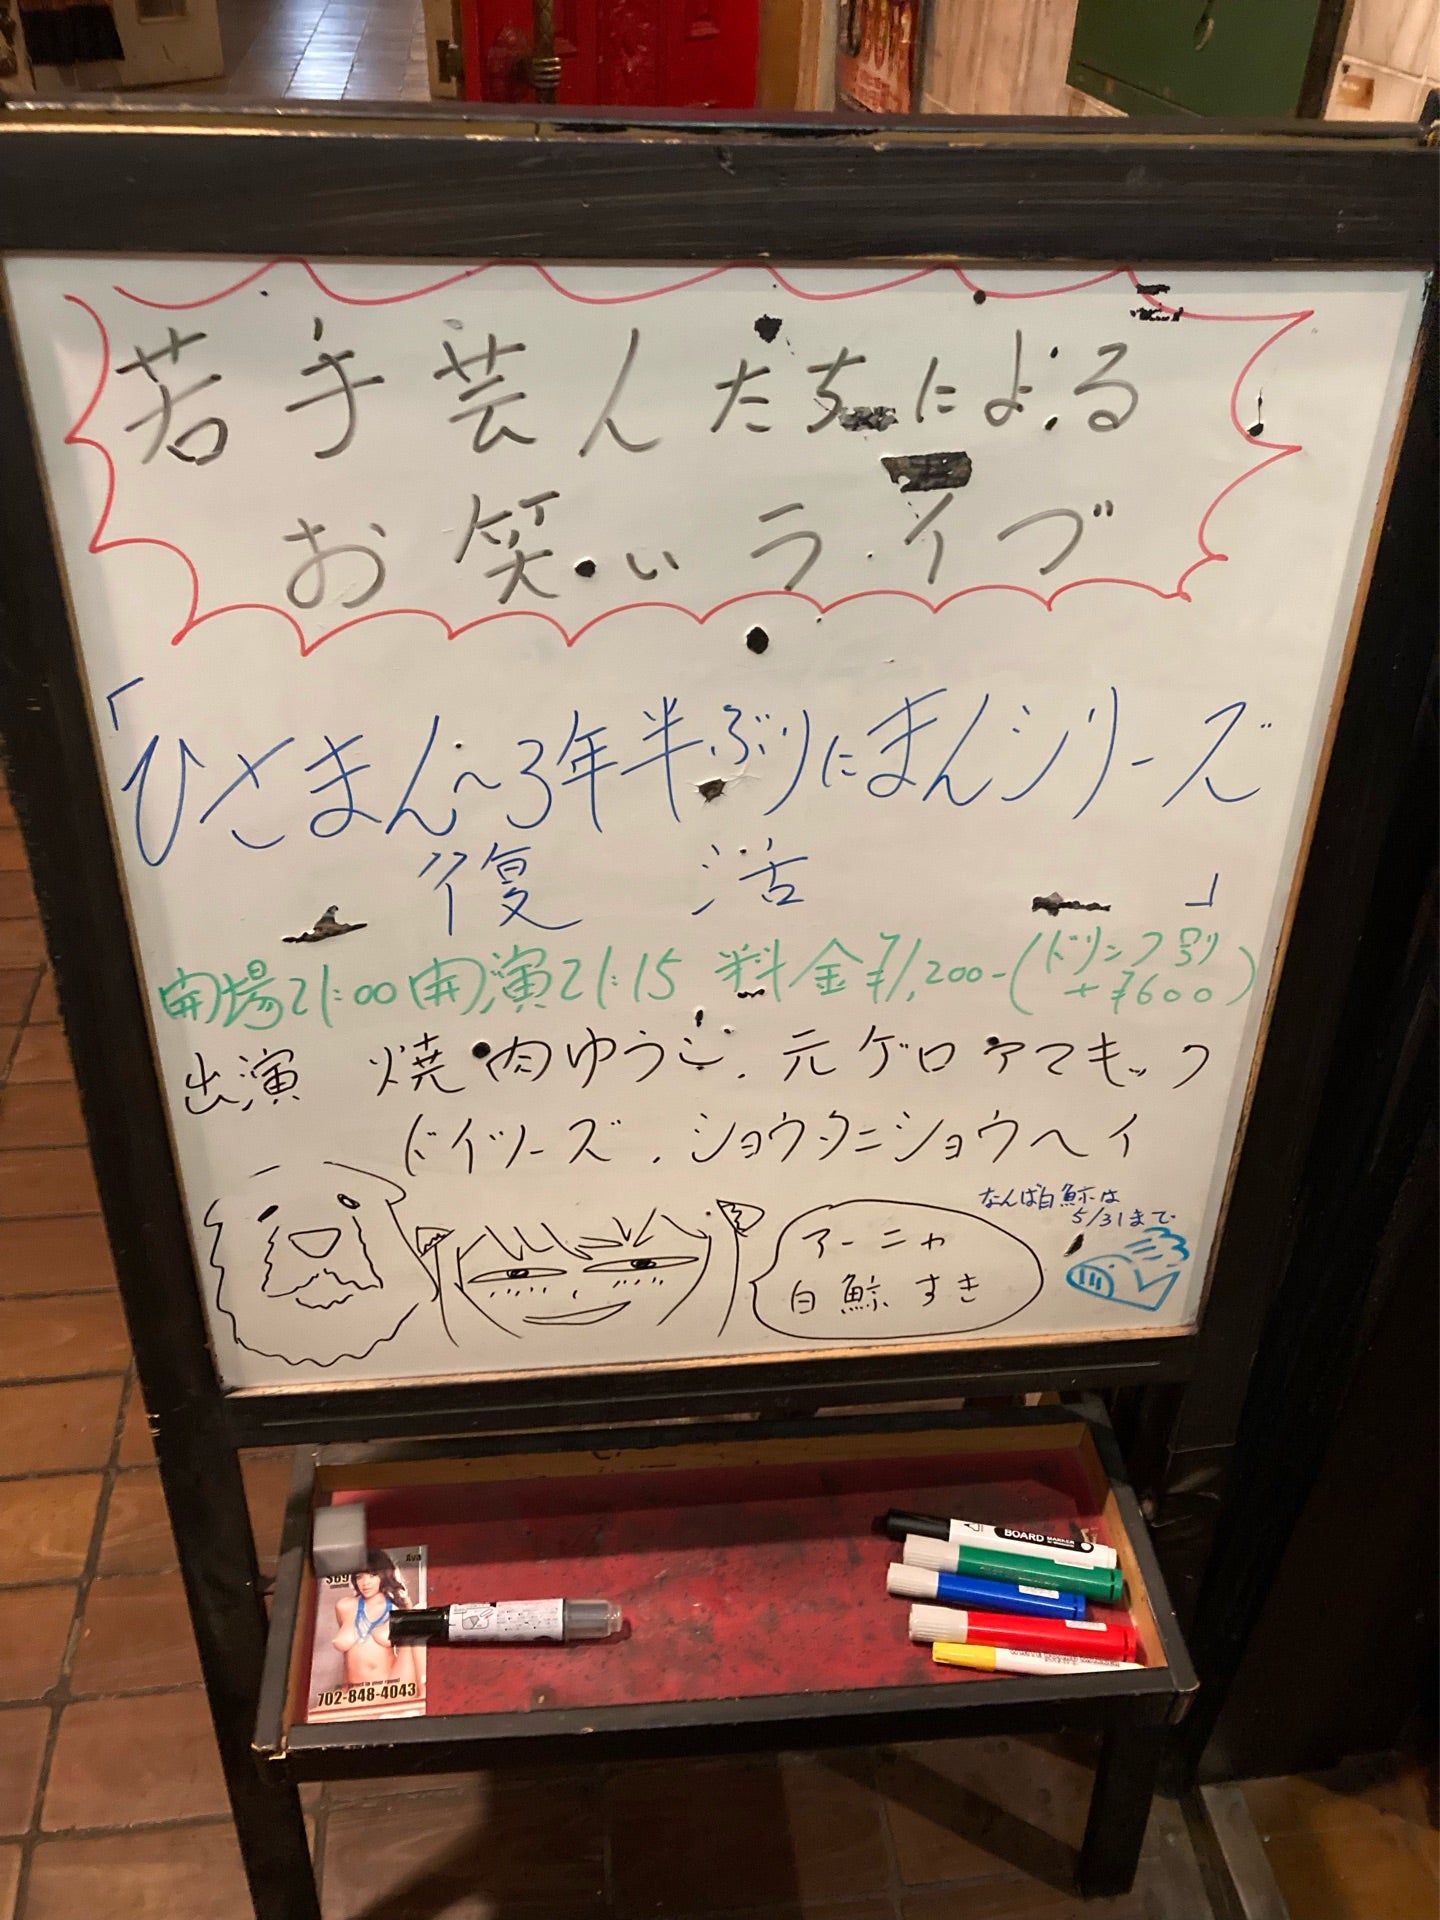 若手芸人たちによる
お笑いライブ
「ひさまん〜3年半ぶりにまんシリーズ
復活」
開場21:00 開演21:15 料金¥1,200-(ドリンク別
+¥600)
出演 焼肉ゆうじ、元ゲロアマキック
ドイツーズ、ショウタニショウヘイ
なんば白鯨は
5/31まで
アーニャ
白鯨すき
BOARD MARKER
Ava
$69
702-848-4043